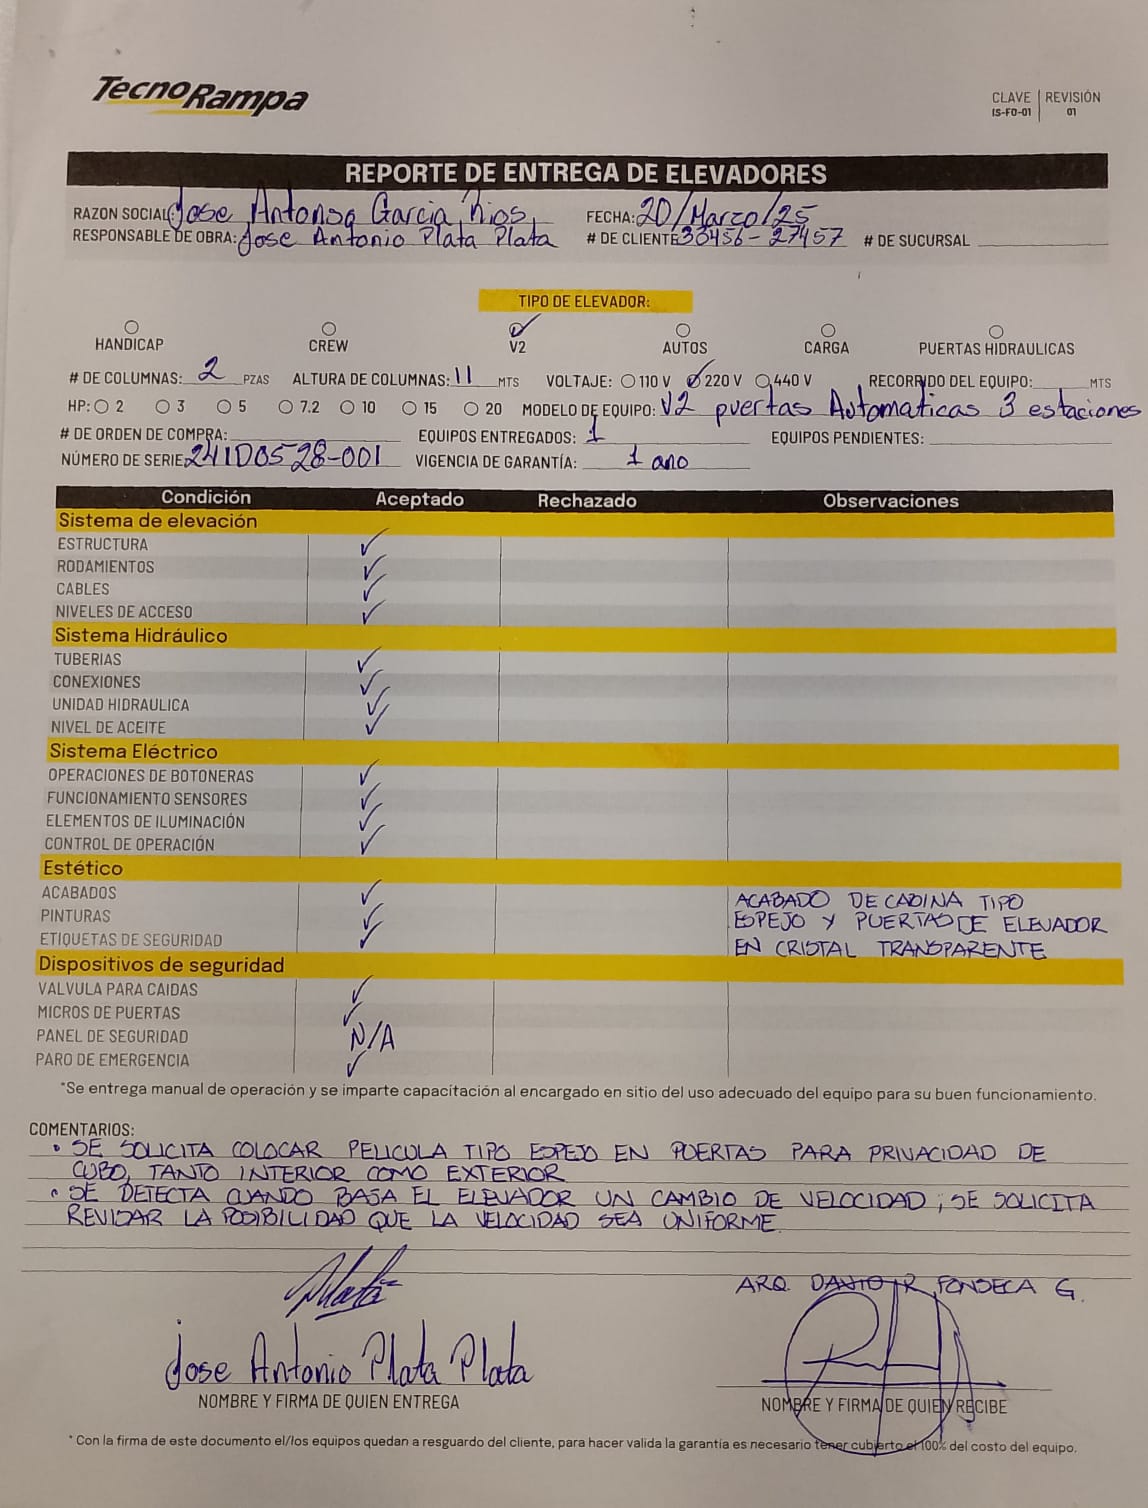 TecnoRampa
CLAVE | REVISIÓN
IS-FO-01 | 01
REPORTE DE ENTREGA DE ELEVADORES
RAZON SOCIAL: Jose Antonio Garcia Rios. FECHA: 20/Marzo/25
RESPONSABLE DE OBRA: Jose Antonio Plata Plata # DE CLIENTE 33456-27457 # DE SUCURSAL
TIPO DE ELEVADOR:
HANDICAP CREW V2 AUTOS CARGA PUERTAS HIDRAULICAS
# DE COLUMNAS: 2 PZAS ALTURA DE COLUMNAS: 11 MTS VOLTAJE: 110 V 220 V 440 V RECORRIDO DEL EQUIPO: MTS
HP: 2 3 5 7.2 10 15 20 MODELO DE EQUIPO: V2 puertas Automaticas 3 estaciones
# DE ORDEN DE COMPRA: EQUIPOS ENTREGADOS: 1 EQUIPOS PENDIENTES:
NÚMERO DE SERIE: 241D0528-001 VIGENCIA DE GARANTÍA: 1 ano
Condición Aceptado Rechazado Observaciones
Sistema de elevación
ESTRUCTURA ✓
RODAMIENTOS ✓
CABLES ✓
NIVELES DE ACCESO ✓
Sistema Hidráulico
TUBERIAS ✓
CONEXIONES ✓
UNIDAD HIDRAULICA ✓
NIVEL DE ACEITE ✓
Sistema Eléctrico
OPERACIONES DE BOTONERAS ✓
FUNCIONAMIENTO SENSORES ✓
ELEMENTOS DE ILUMINACIÓN ✓
CONTROL DE OPERACIÓN ✓
Estético
ACABADOS ✓ ACABADO DE CABINA TIPO
PINTURAS ✓ ESPEJO Y PUERTAS DE ELEVADOR
ETIQUETAS DE SEGURIDAD ✓ EN CRISTAL TRANSPARENTE
Dispositivos de seguridad
VALVULA PARA CAIDAS ✓
MICROS DE PUERTAS ✓
PANEL DE SEGURIDAD N/A
PARO DE EMERGENCIA ✓
*Se entrega manual de operación y se imparte capacitación al encargado en sitio del uso adecuado del equipo para su buen funcionamiento.
COMENTARIOS:
• SE SOLICITA COLOCAR PELICULA TIPO ESPEJO EN PUERTAS PARA PRIVACIDAD DE
CUBO, TANTO INTERIOR COMO EXTERIOR
• SE DETECTA CUANDO BAJA EL ELEVADOR UN CAMBIO DE VELOCIDAD; SE SOLICITA
REVISAR LA POSIBILIDAD QUE LA VELOCIDAD SEA UNIFORME
Plata
ARQ. DAVID R. FONSECA G.
Jose Antonio Plata Plata
NOMBRE Y FIRMA DE QUIEN ENTREGA NOMBRE Y FIRMA DE QUIEN RECIBE
* Con la firma de este documento el/los equipos quedan a resguardo del cliente, para hacer valida la garantia es necesario tener cubierto el 100% del costo del equipo.